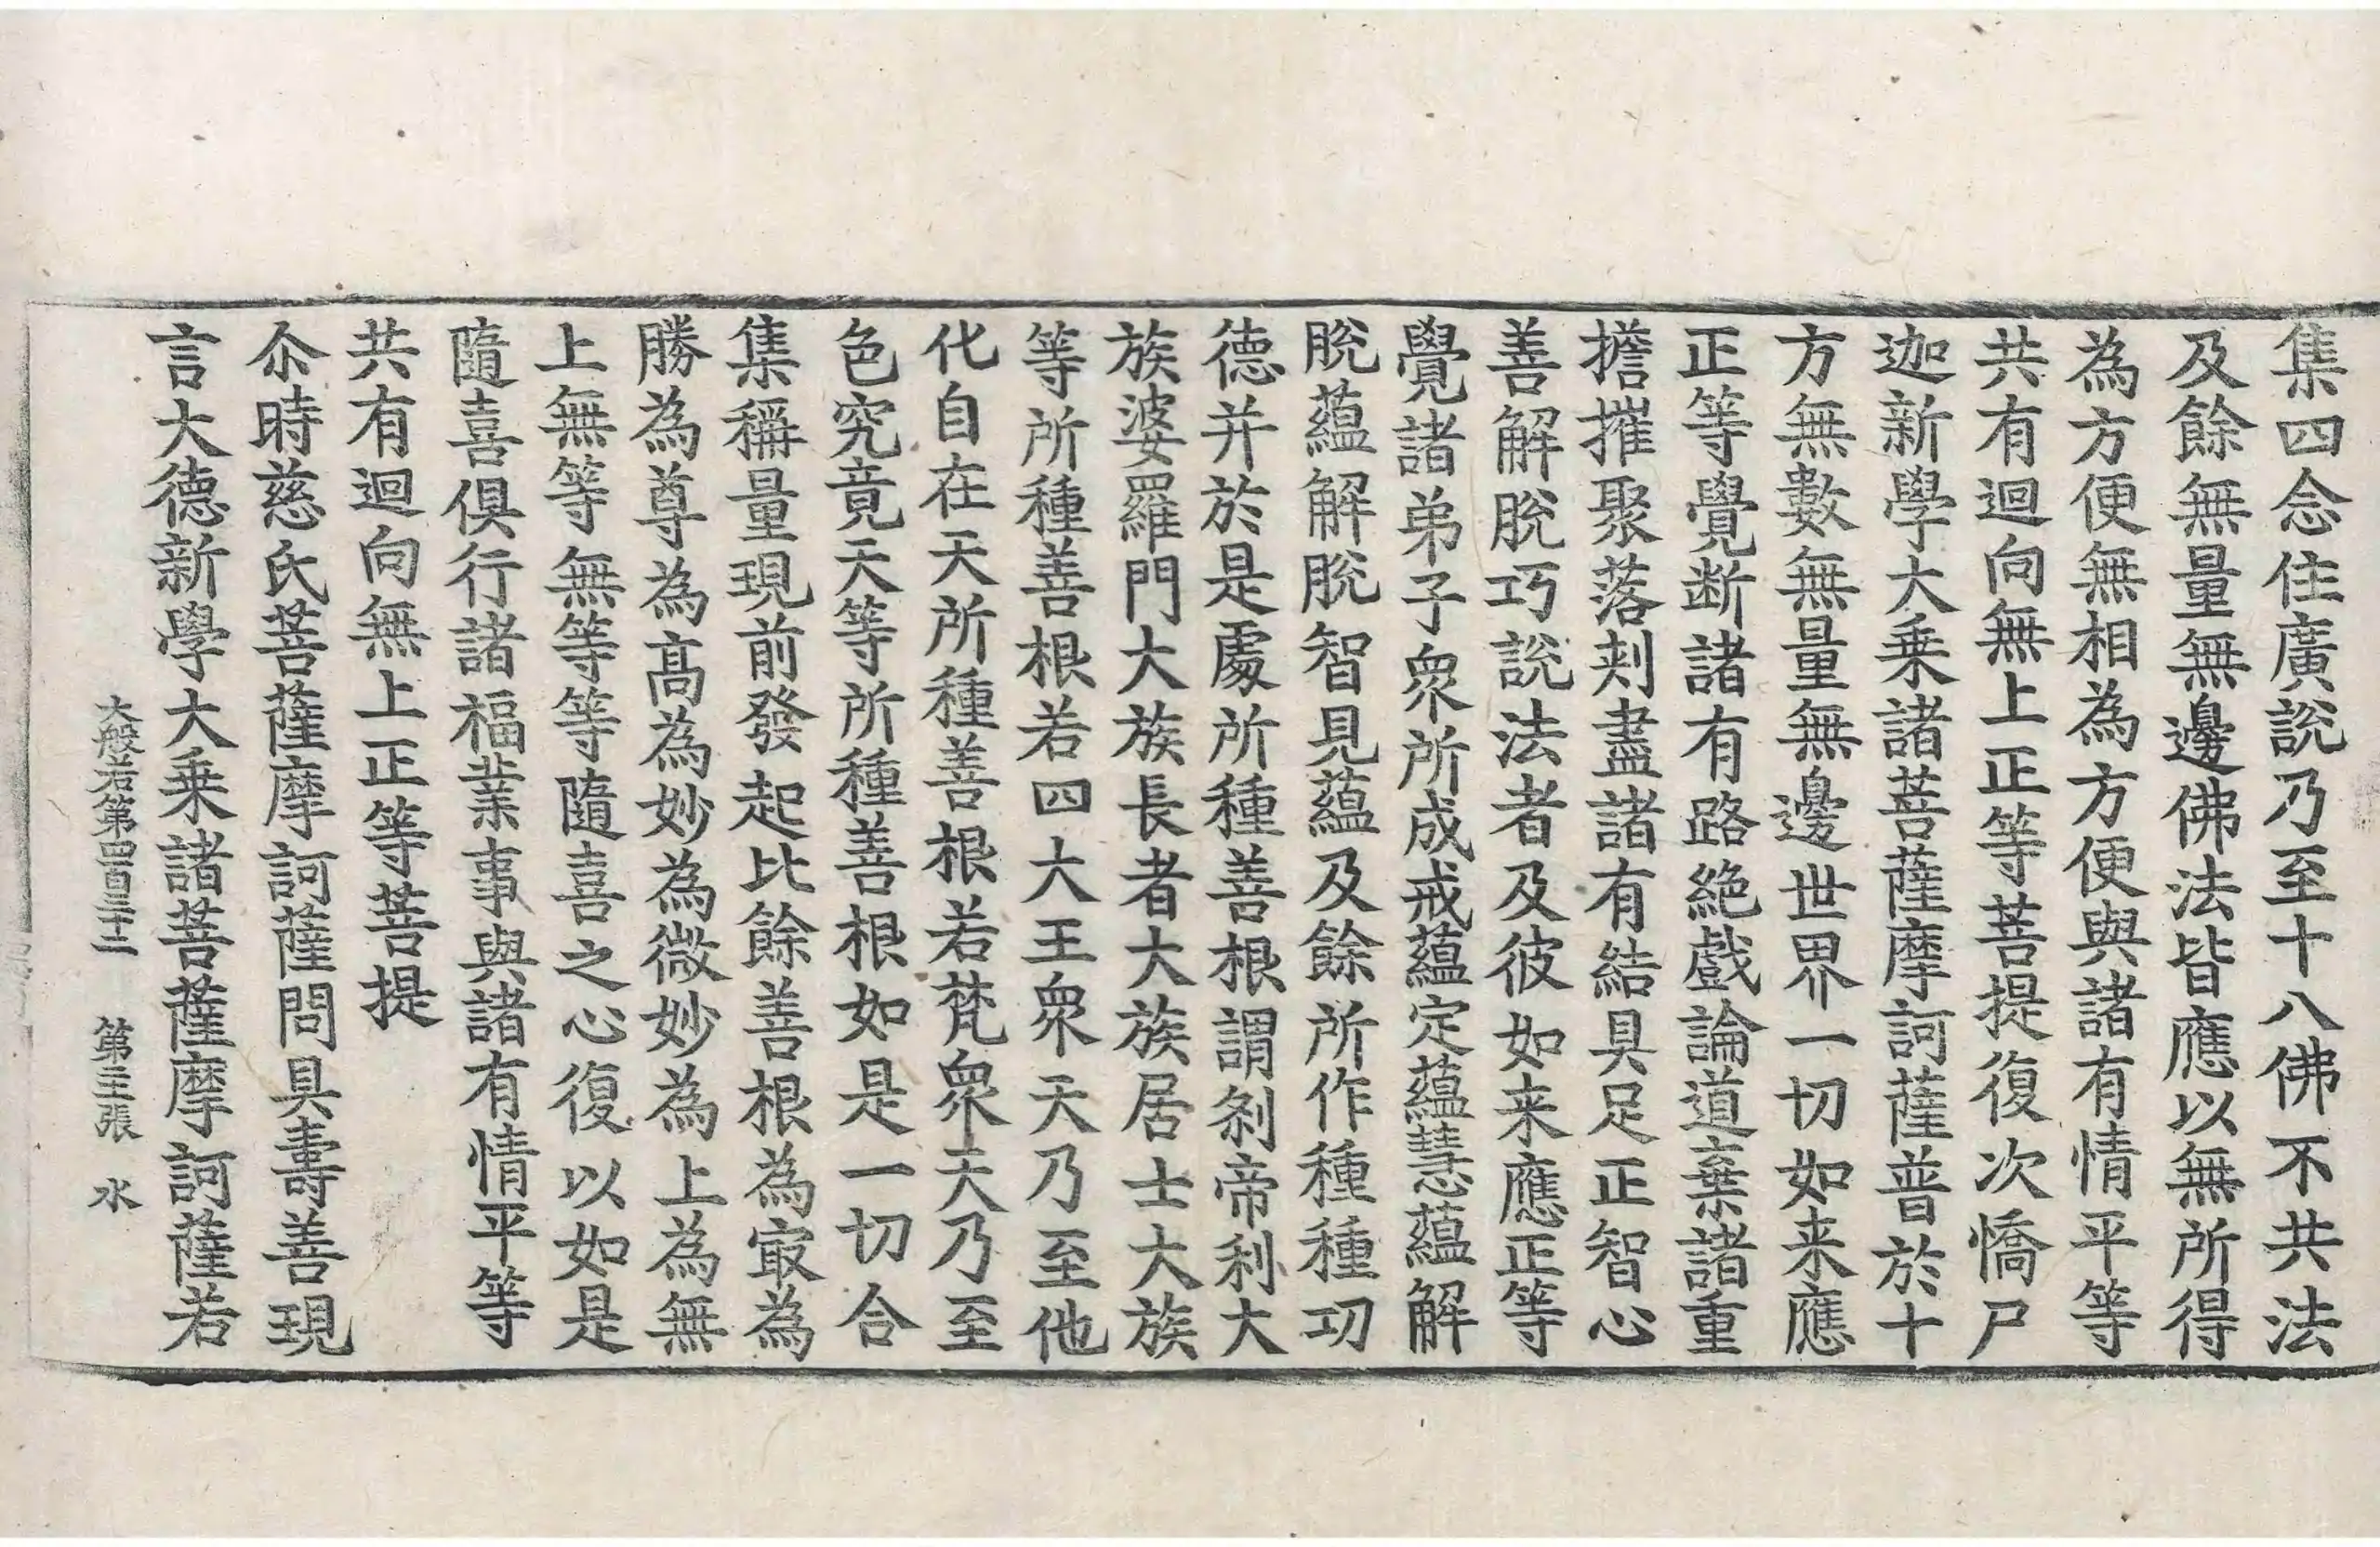 集四念住廣說乃至十八佛不共法
及餘無量無邊佛法皆應以無所得
為方便無相為方便與諸有情平等
共有迴向無上正等菩提復次憍尸
迦新學大乘諸菩薩摩訶薩普於十
方無數無量無邊世界一切如來應
正等覺斷諸有路絕戲論道棄諸重
擔摧聚落刾盡諸有結具足正智心
善解脫巧說法者及彼如來應正等
覺諸弟子眾所成戒蘊定蘊慧蘊解
脫蘊解脫智見蘊及餘所作種種功
德并於是處所種善根謂剎帝利大
族婆羅門大族長者大族居士大族
等所種善根若四大王眾天乃至他
化自在天所種善根若梵眾天乃至
色究竟天等所種善根如是一切合
集稱量現前發起比餘善根為㝡為
勝為尊為高為妙為微妙為上為無
上無等無等等隨喜之心復以如是
隨喜俱行諸福業事與諸有情平等
共有迴向無上正等菩提
尒時慈氏菩薩摩訶薩問具壽善現
言大德新學大乘諸菩薩摩訶薩若
大般若第四百三十二 第三張 水